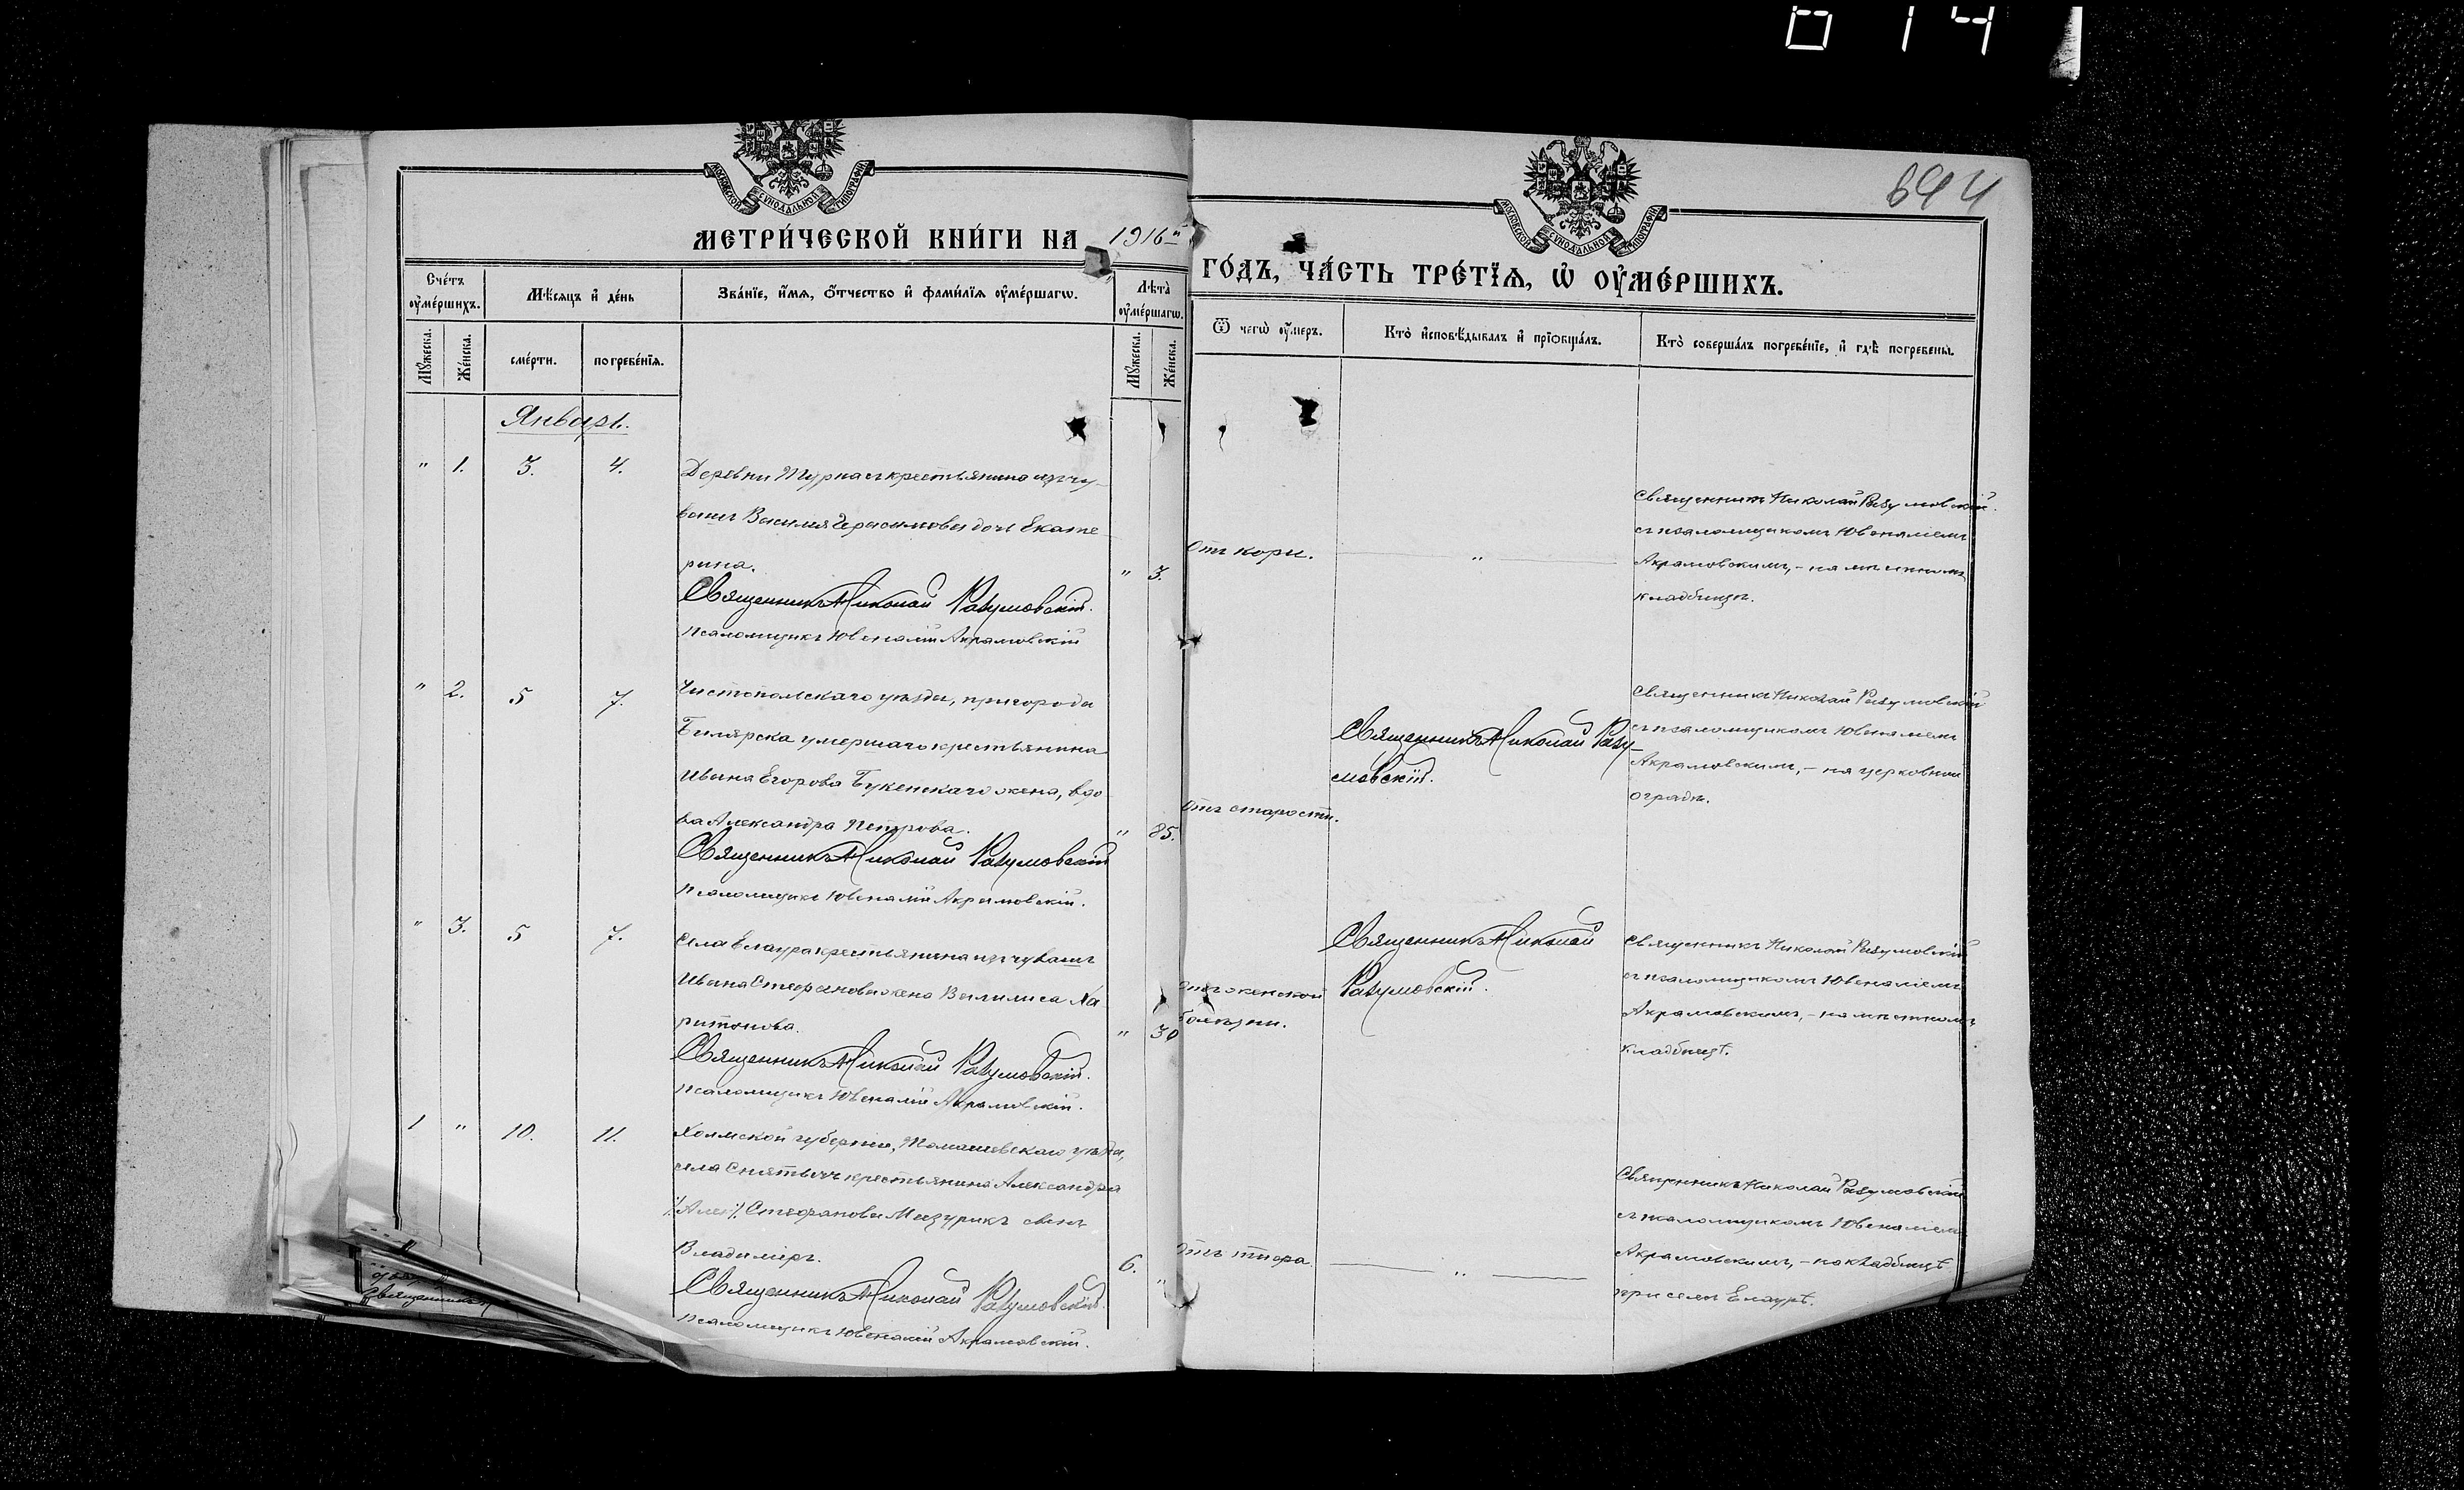 014
644
МОСКОВСКОЙ СѴНОДАЛЬНОЙ ТИПОГРАФІИ
МОСКОВСКОЙ СѴНОДАЛЬНОЙ ТИПОГРАФІИ
МЕТРИ́ЧЕСКОЙ КНИ́ГИ НА 1916й
ГО́ДЪ, ЧА́СТЬ ТРЕ́ТЇѦ, Ѡ҆ ОУ҆МЕ́РШИХЪ.
Сче́тъ оу҆ме́ршихъ.
Мꙋ́жеска.
Же́нска.
Мѣ́сѧцъ и҆ де́нь
сме́рти.
погребе́нїѧ.
Зва́нїе, и҆́мѧ, ѻ҆́тчество и҆ фами́лїѧ оу҆ме́ршагѡ.
Лѣ́та оу҆ме́ршагѡ.
Мꙋ́жеска.
Же́нска.
Ѿ чегѡ̀ оу҆́меръ.
Кто̀ и҆сповѣ́дывалъ и҆ прїѡбща́лъ.
Кто̀ соверша́лъ погребе́нїе, и҆ гдѣ̀ погребены̀.
Январь.
" 1. 3. 4.
Деревни Турнасъ крестьянина изъ чу-
вашъ Василія Герасимова дочь Екате
рина.
Священникъ Николай Разумовскій.
Псаломщикъ Ювеналій Акрамовскій
" 3.
Отъ кори.
"
Священникъ Николай Разумовскій.
съ псаломщикомъ Ювеналіемъ
Акрамовскимъ, - на мѣстномъ
кладбищѣ.
" 2. 5 7.
Чистопольскаго уѣзда, пригорода
Билярска умершаго крестьянина
Ивана Егорова Букенскаго жена, вдо
ва Александра Петрова.
Священникъ Николай Разумовскій
Псаломщикъ Ювеналій Акрамовскій.
" 85.
Отъ старости.
Священникъ Николай Разу-
мовскій.
Священникъ Николай Разумовскій
съ псаломщикомъ Ювеналіемъ
Акрамовскимъ, - на церковной
оградѣ.
" 3. 5 7.
Села Елаура крестьянина изъ чувашъ
Ивана Стефанова жена Василиса Ха
ритонова.
Священникъ Николай Разумовскій.
Псаломщикъ Ювеналій Акрамовскій.
" 30
Отъ женской
болѣзни.
Священникъ Николай
Разумовскій.
Священникъ Николай Разумовскій
съ псаломщикомъ Ювеналіемъ
Акрамовскимъ, - на мѣстномъ
кладбищѣ.
1 " 10. 11.
Холмской губерніи, Томашевскаго уѣзда,
села Снятычъ крестьянина Александра
Стефанова Мазурикъ сынъ
Владиміръ.
Священникъ Николай Разумовскій.
Псаломщикъ Ювеналій Акрамовскій.
6. "
Отъ тифа.
"
Священникъ Николай Разумовскій
съ псаломщикомъ Ювеналіемъ
Акрамовскимъ, - на кладбищѣ
при селѣ Елаурѣ.
Священникъ